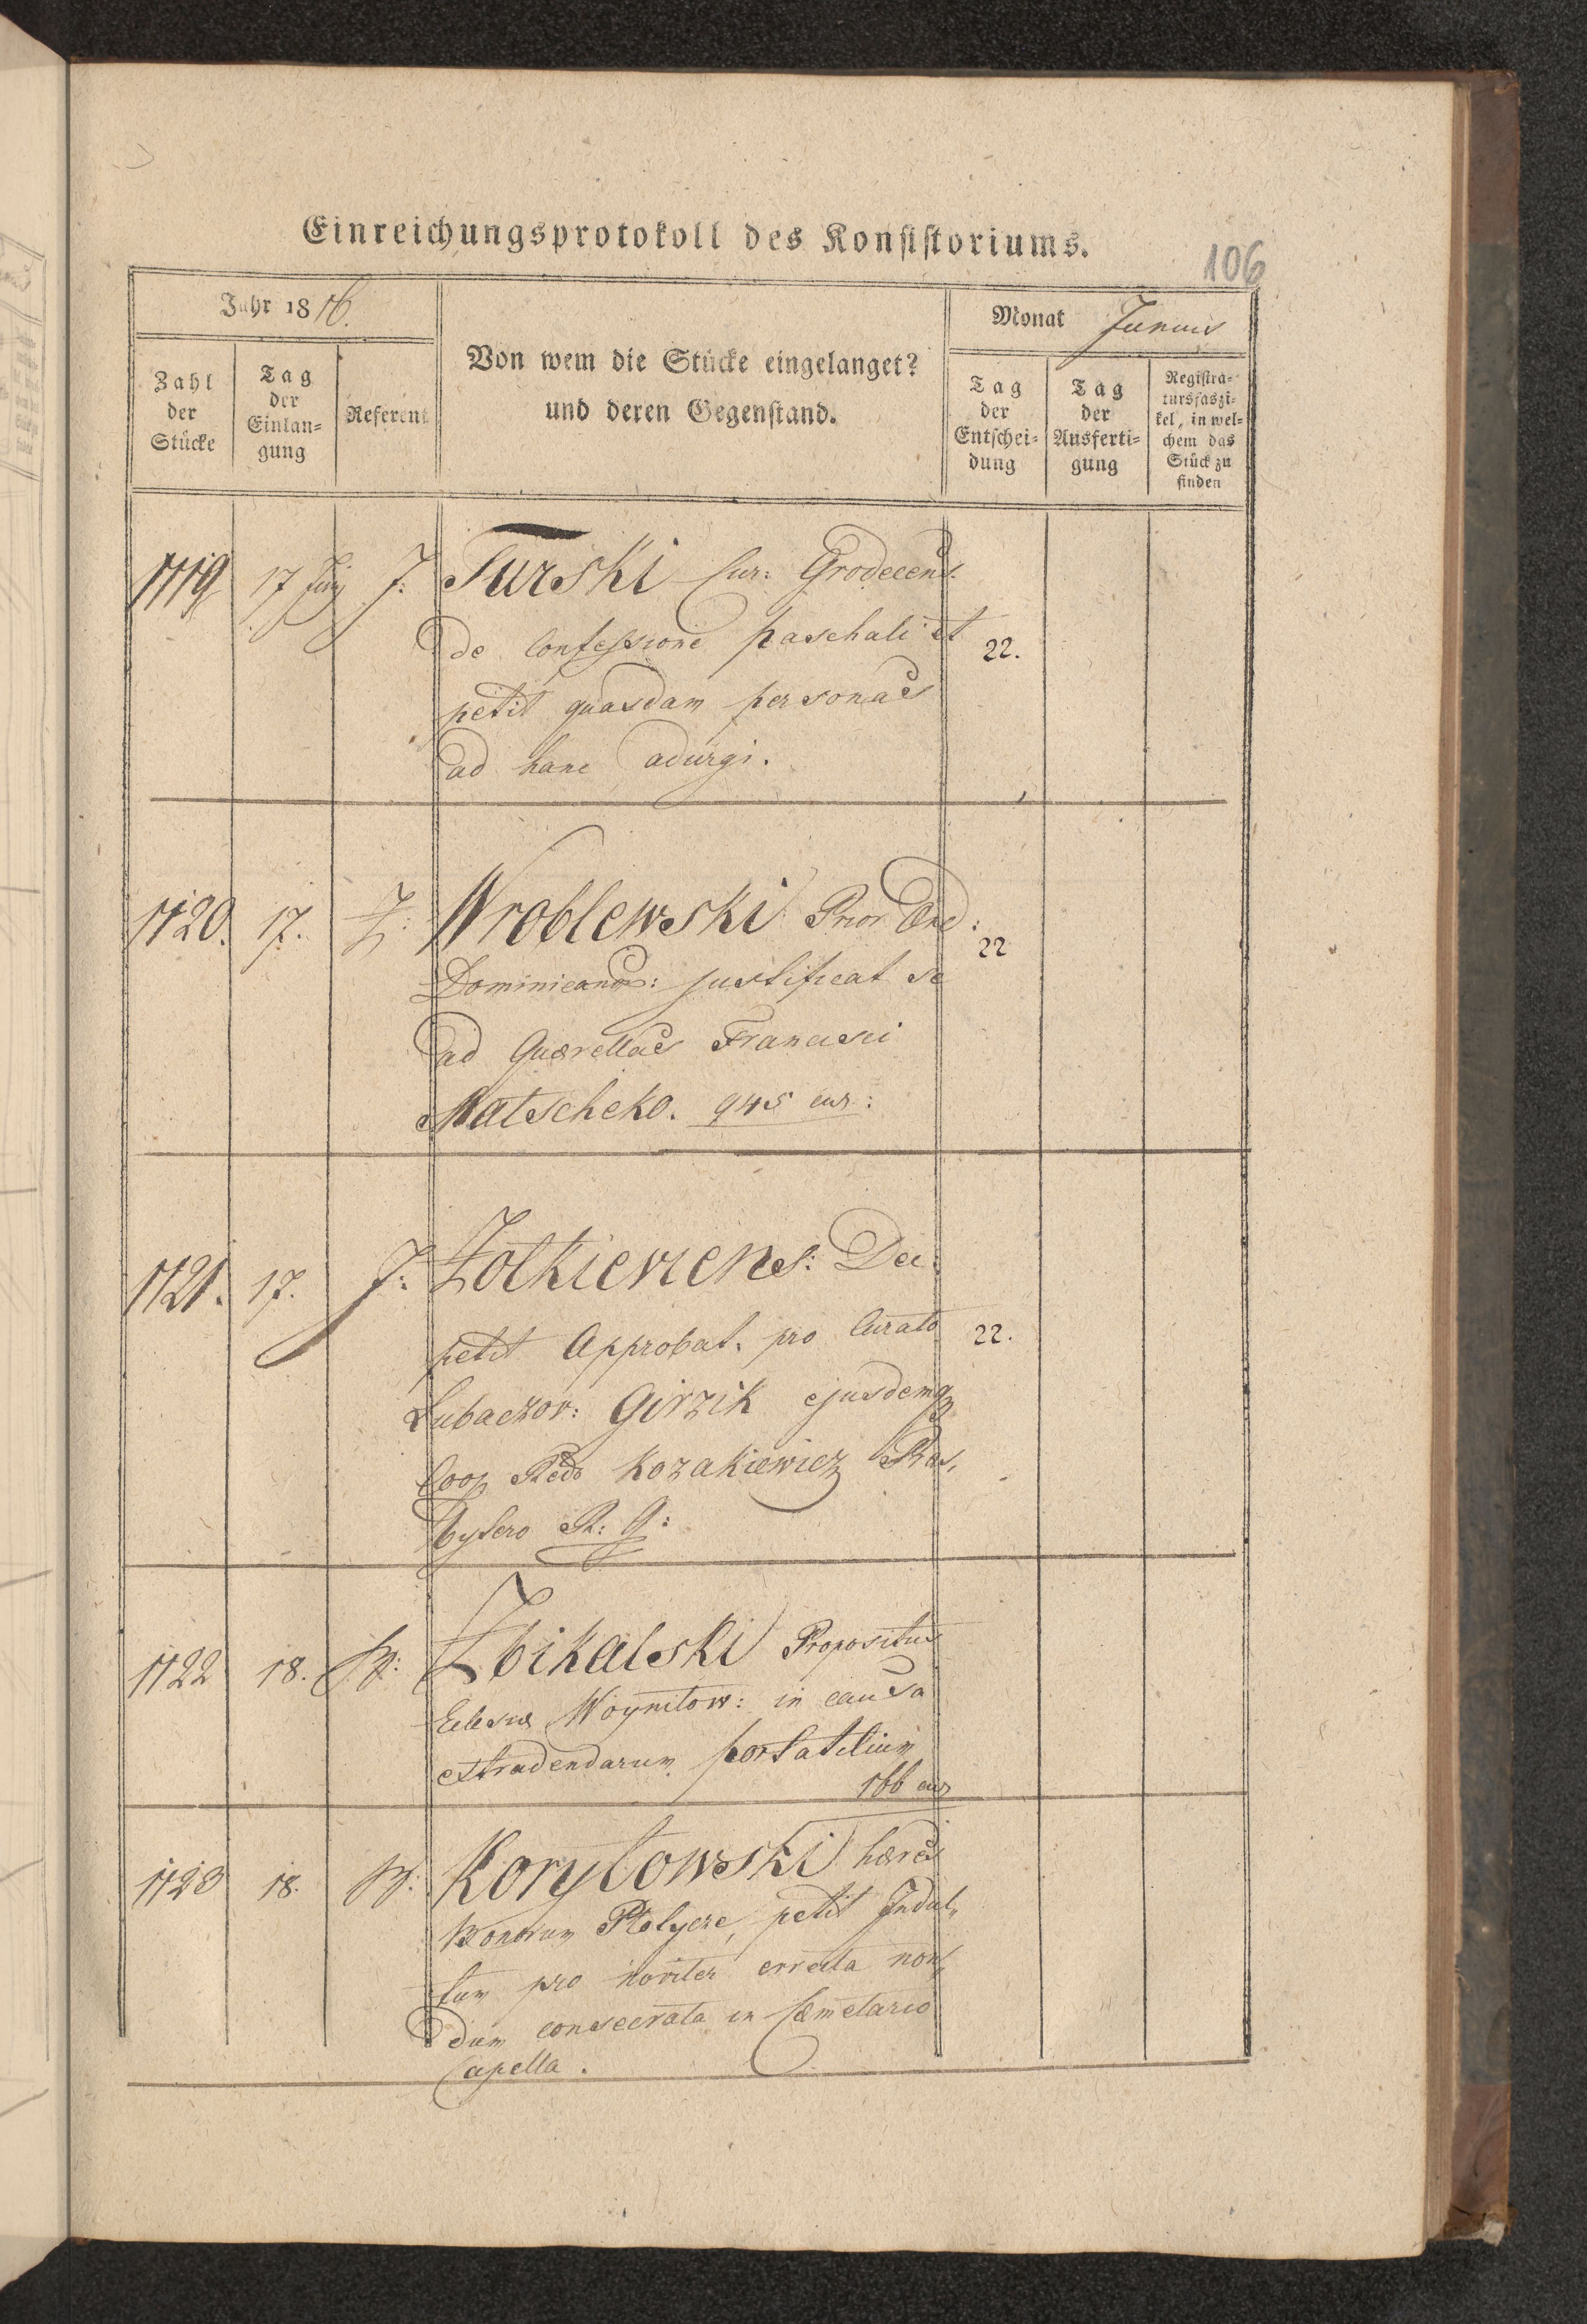 Einreichungsprotokoll des Konsistoriums.
106
Jahr 1816.
Monat Junius
Zahl der Stücke
Tag der Einlangung
Referent
Von wem die Stücke eingelanget?
und deren Gegenstand.
Tag der Entscheidung
Tag der Ausfertigung
Registratursfaszikel, in welchem das Stück zu finden
1119 17 Juny J: Turski Cur: Grodecens:
de Confessione paschali et 22.
petit quasdam personas
ad hanc adurgi.
1120. 17. Z: Wroblewski Prior Ord: 22
Dominicanor: justificat se
ad Quærellas Francisci
Matscheko. 945 cur:
1121. 17. J: Zołkieviens: Dec:
petit Approbat. pro Curato 22.
Lubaczov: Girzik ejusdemq
Coop Rdo Kozakiewicz Præs,
bytero R: G:
1122 18. Zbikalski Propositus
Eclesiæ Woynilow: in causa
extradendarum portatilium
166 cur
1123 18. Korytowski hæres
Bonorum Płotycze, petit Indul,
tum pro noviter errecta non,
dum consecrata in Cæmetario
Capella.